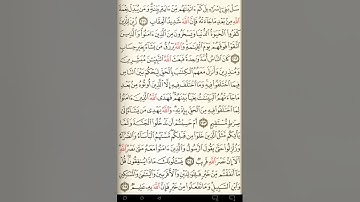 سَلْ بَنِىٓ إِسْرَٰٓءِيلَ كَمْ ءَاتَيْنَٰهُم مِّنْ ءَايَةٍۭ بَيِّنَةٍ وَمَن يُبَدِّلْ نِعْمَةَ
ٱللَّهِ مِنۢ بَعْدِ مَا جَآءَتْهُ فَإِنَّ ٱللَّهَ شَدِيدُ ٱلْعِقَابِ ٢١١ زُيِّنَ لِلَّذِينَ
كَفَرُوا۟ ٱلْحَيَوٰةُ ٱلدُّنْيَا وَيَسْخَرُونَ مِنَ ٱلَّذِينَ ءَامَنُوا۟ وَٱلَّذِينَ
ٱتَّقَوْا۟ فَوْقَهُمْ يَوْمَ ٱلْقِيَٰمَةِ وَٱللَّهُ يَرْزُقُ مَن يَشَآءُ بِغَيْرِ حِسَابٍ
٢١٢ كَانَ ٱلنَّاسُ أُمَّةً وَٰحِدَةً فَبَعَثَ ٱللَّهُ ٱلنَّبِيِّۦنَ مُبَشِّرِينَ
وَمُنذِرِينَ وَأَنزَلَ مَعَهُمُ ٱلْكِتَٰبَ بِٱلْحَقِّ لِيَحْكُمَ بَيْنَ ٱلنَّاسِ
فِيمَا ٱخْتَلَفُوا۟ فِيهِ وَمَا ٱخْتَلَفَ فِيهِ إِلَّا ٱلَّذِينَ أُوتُوهُ مِنۢ بَعْدِ
مَا جَآءَتْهُمُ ٱلْبَيِّنَٰتُ بَغْيًۢا بَيْنَهُمْ فَهَدَى ٱللَّهُ ٱلَّذِينَ ءَامَنُوا۟
لِمَا ٱخْتَلَفُوا۟ فِيهِ مِنَ ٱلْحَقِّ بِإِذْنِهِۦ وَٱللَّهُ يَهْدِى مَن يَشَآءُ إِلَىٰ صِرَٰطٍ
مُّسْتَقِيمٍ ٢١٣ أَمْ حَسِبْتُمْ أَن تَدْخُلُوا۟ ٱلْجَنَّةَ وَلَمَّا
يَأْتِكُم مَّثَلُ ٱلَّذِينَ خَلَوْا۟ مِن قَبْلِكُم مَّسَّتْهُمُ ٱلْبَأْسَآءُ وَٱلضَّرَّآءُ
وَزُلْزِلُوا۟ حَتَّىٰ يَقُولَ ٱلرَّسُولُ وَٱلَّذِينَ ءَامَنُوا۟ مَعَهُۥ مَتَىٰ نَصْرُ ٱللَّهِ
أَلَآ إِنَّ نَصْرَ ٱللَّهِ قَرِيبٌ ٢١٤ يَسْـَٔلُونَكَ مَاذَا يُنفِقُونَ قُلْ
مَآ أَنفَقْتُم مِّنْ خَيْرٍ فَلِلْوَٰلِدَيْنِ وَٱلْأَقْرَبِينَ وَٱلْيَتَٰمَىٰ وَٱلْمَسَٰكِينِ
وَٱبْنِ ٱلسَّبِيلِ وَمَا تَفْعَلُوا۟ مِنْ خَيْرٍ فَإِنَّ ٱللَّهَ بِهِۦ عَلِيمٌ ٢١٥